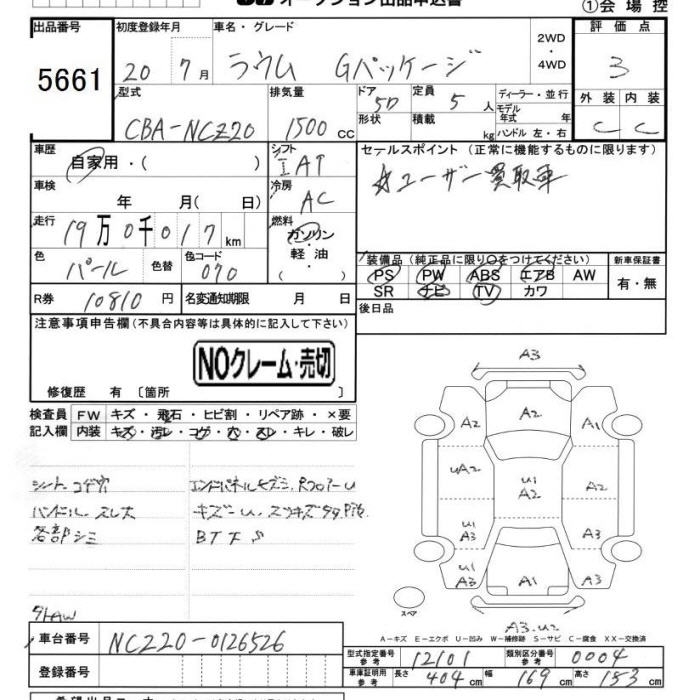 オークション出品申込書
①会場控
出品番号 初度登録年月 車名・グレード 2WD ・ 4WD 評価点
5661 20 7月 ラウム Gパッケージ 3
型式 排気量 ドア 5D 定員 5人 ディーラー・並行 外装 内装
CBA-NCZ20 1500cc 形状 積載 kg モデル年式 年 ハンドル 左・右 C C
車歴 自家用・( ) シフト IAT セールスポイント (正常に機能するものに限ります)
車検 年 月( 日) 冷房 AC ユーザー買取車
走行 19万0千017km 燃料 ガソリン・軽油・( )
色 パール 色替 色コード 070
装備品(純正品に限り○をつけてください) 新車保証書
PS PW ABS エアB AW 有・無
SR ナビ TV カワ
R券 10810円 名変通知期限 月 日 後日品
注意事項申告欄(不具合内容等は具体的に記入して下さい)
NOクレーム・売切
修復歴 有 〔箇所 〕
検査員 FW キズ・飛石・ヒビ割・リペア跡・×要
記入欄 内装 キズ・汚レ・コゲ・穴・スレ・キレ・破レ
シートコゲ穴
ハンドルスレ大 キズーU
各部シミ BTFS
A3
A2 A2 A1
UA2 U1 A2 A2
U1 A3 A3
U1 A3 A1
スペア
A3.U2
A-キズ E-エクボ U-凹み W-補修跡 S-サビ C-腐食 XX-交換済
車台番号 NCZ20-0126526
型式指定番号 参考 12101 類別区分番号 参考 0004
登録番号 車庫証明用 参考 長さ 404cm 幅 169cm 高さ 153cm